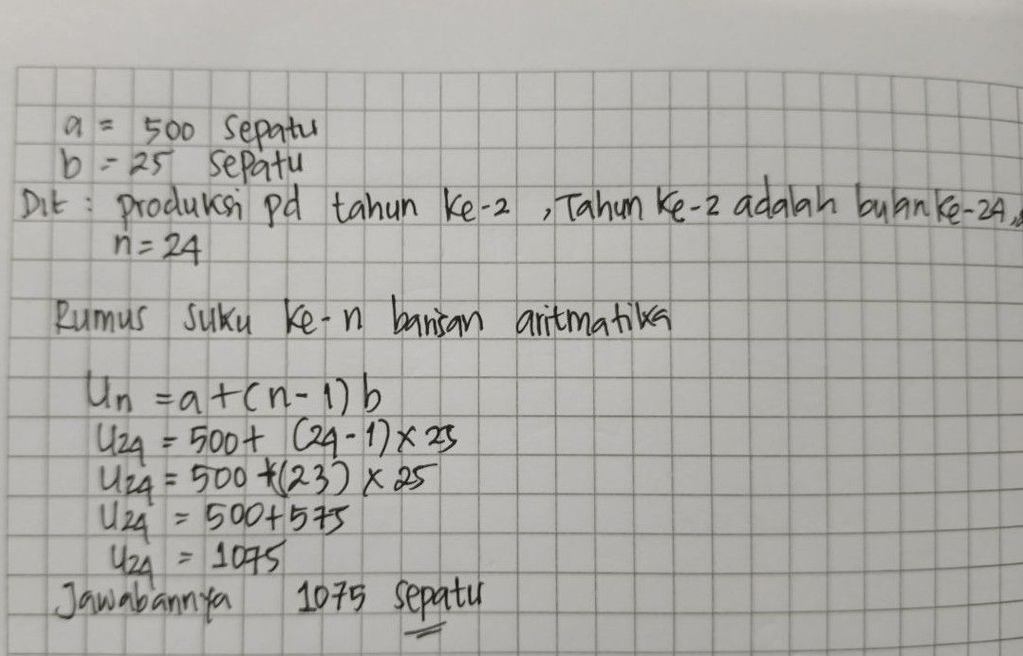 a = 500 sepatu
b = 25 sepatu
Dit : produksi pd tahun ke-2 , Tahun ke-2 adalah bulan ke-24,
n = 24
Rumus suku ke-n barisan aritmatika
Un = a + (n - 1) b
U24 = 500 + (24 - 1) x 25
U24 = 500 + (23) x 25
U24 = 500 + 575
U24 = 1075
Jawabannya 1075 sepatu